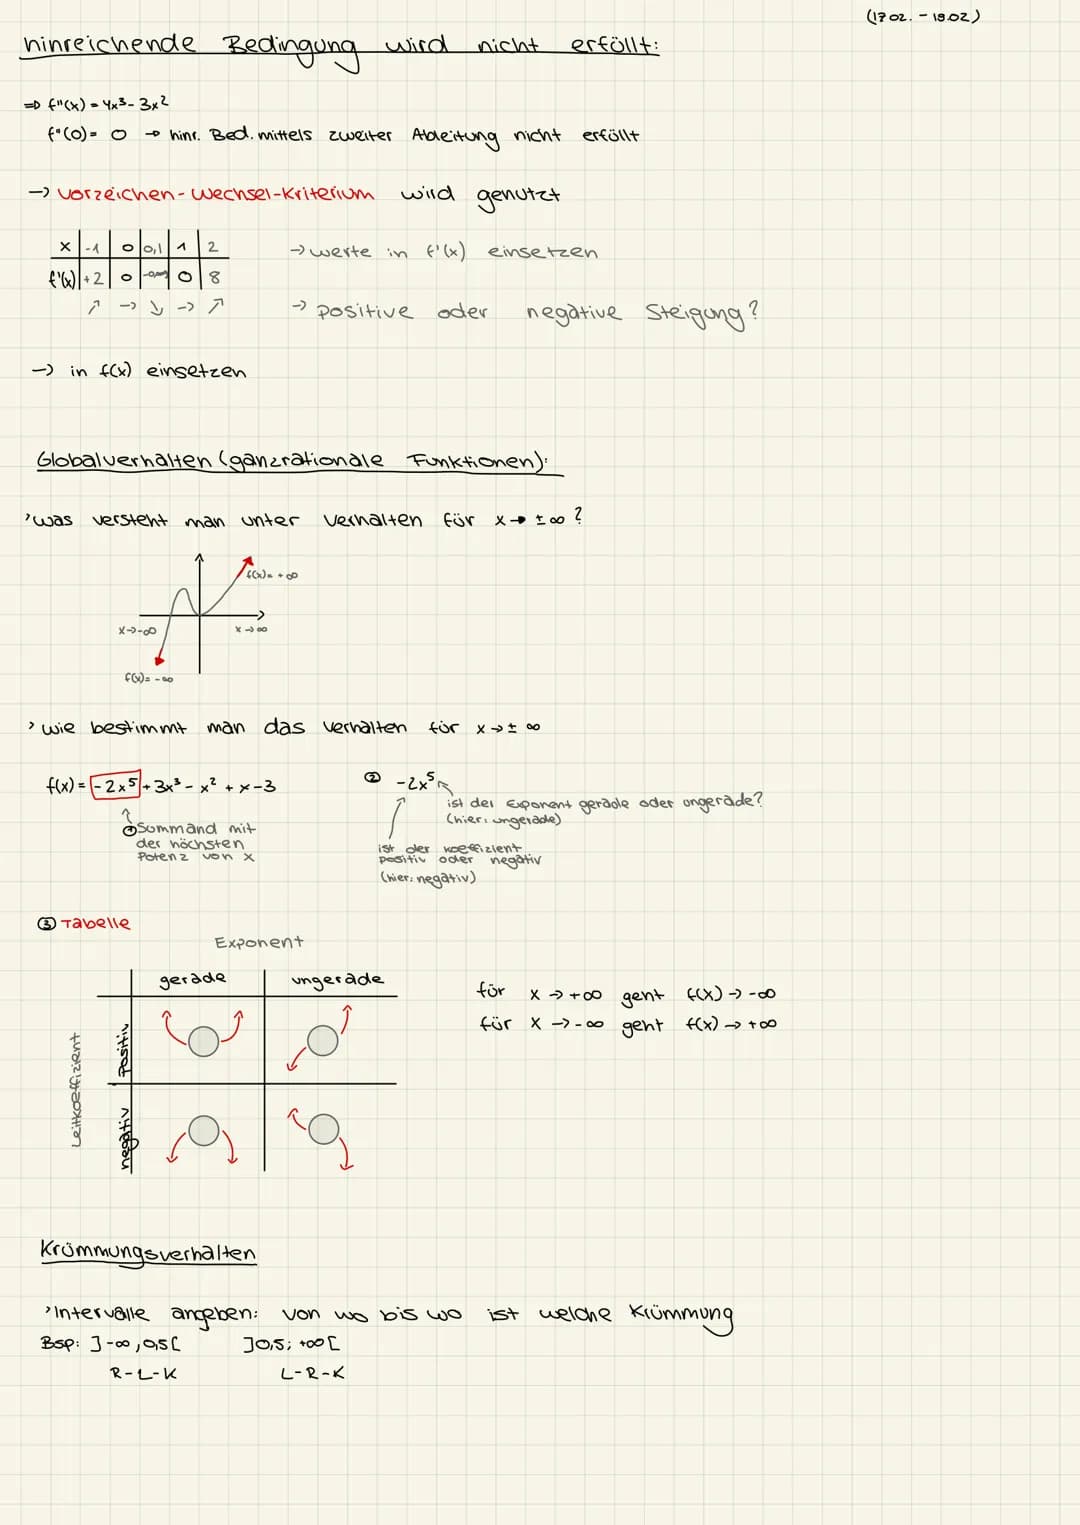 (17.02. - 19.02)
hinreichende Bedingung wird nicht erfüllt:
=> f"(x) = 4x³ - 3x²
f"(0) = 0 → hinr. Bed. mittels zweiter Ableitung nicht erfüllt
-> Vorzeichen-Wechsel-Kriterium wird genutzt
x | -1 | 0 | 0,1 | 1 | 2
f'(x) | +2 | 0 | | 0 | 8
↗ -> ↘ -> ↗
-> werte in f'(x) einsetzen
-> positive oder negative Steigung?
-> in f(x) einsetzen
Globalverhalten (ganzrationale Funktionen):
'was versteht man unter Verhalten für x → ± ∞ ?
f(x) = + ∞
x -> -∞
x -> ∞
f(x) = - ∞
' wie bestimmt man das Verhalten für x -> ± ∞
f(x) = - 2x⁵ + 3x³ - x² + x - 3
① Sommand mit
der höchsten
Potenz von x
② -2x⁵
ist der Exponent gerade oder ungerade?
(hier: ungerade)
ist der Koeffizient
positiv oder negativ
(hier: negativ)
③ Tabelle
Exponent
gerade
ungerade
Leitkoeffizient
positiv
negativ
für x -> +∞ geht f(x) -> -∞
für x -> -∞ geht f(x) -> +∞
Krümmungsverhalten
'Intervalle angeben: von wo bis wo ist welche Krümmung
Bsp: ]-∞, 0,5[ ]0,5; +∞[
R-L-K L-R-K